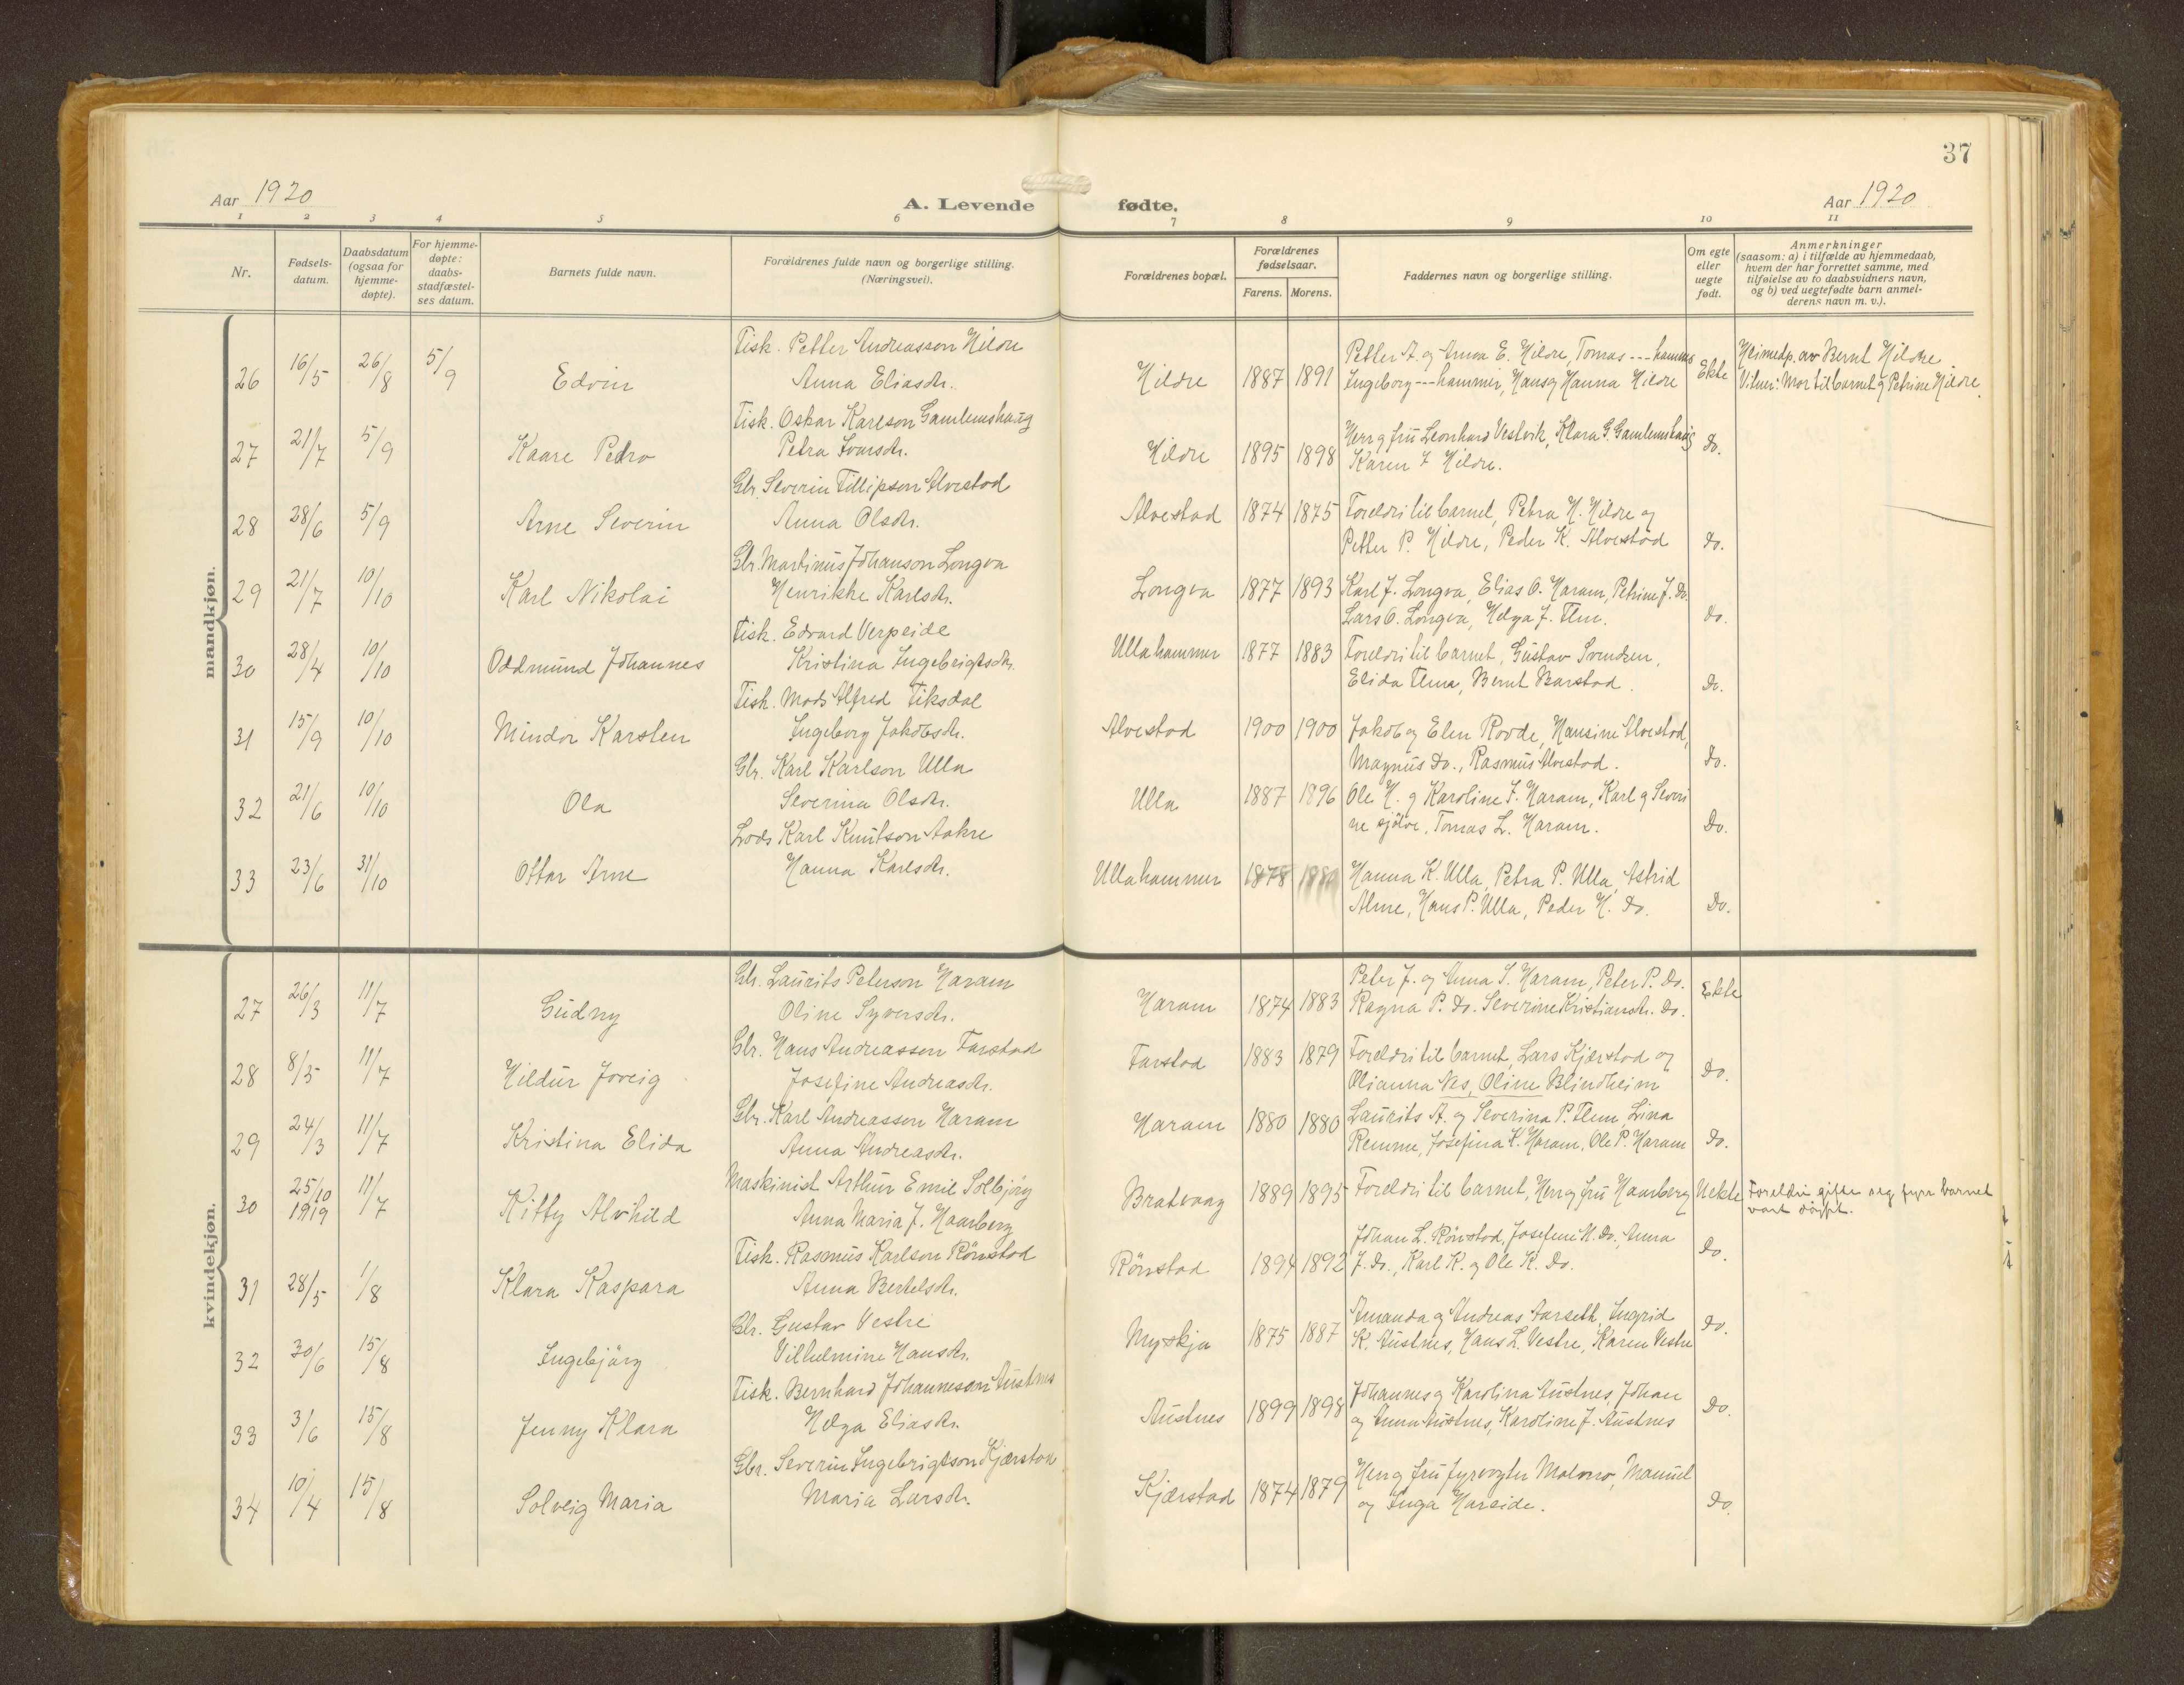 37
Aar 1920
A. Levende fødte.
Aar 1920
1 2 3 4 5 6 7 8 9 10 11
Nr.
Fødsels-
datum.
Daabsdatum
(ogsaa for
hjemme-
døpte).
For hjemme-
døpte:
daabs-
stadfæstel-
ses datum.
Barnets fulde navn.
Forældrenes fulde navn og borgerlige stilling.
(Næringsvei).
Forældrenes bopæl.
Forældrenes
fødselsaar.
Farens. Morens.
Faddernes navn og borgerlige stilling.
Om egte
eller
uegte
født.
Anmerkninger
(saasom: a) i tilfælde av hjemmedaab,
hvem der har forrettet samme, med
tilføielse av to daabsvidners navn,
og b) ved uegtefødte barn anmel-
derens navn m. v.).
maandkjøn.
26 16/5 26/8 5/9 Edvin
Fisk. Petter Andreasson Hildre
Anna Eliasdr.
Hildre 1887 1891
Petter A. og Anna E. Hildre, Tomas --- hammer
Ingeborg --- hammer, Hans og Hanna Hildre
Ekte
Heimedp. av Bernt Hildre
Vitner: Mor til barnet og Petrine Hildre.
27 21/7 5/9 Kaare Pedro
Fisk. Oskar Karlson Gamlemshaug
Petra Ivarsdr.
Hildre 1895 1898
Herr og fru Leonhard Vestvik, Klara G. Gamlemshaug
Karen I Hildre.
Do.
28 28/6 5/9 Arne Severin
Gbr. Severin Fillipson Alvestad
Anna Olsdr.
Alvestad 1874 1875
Foreldri til barnet, Petra H. Hildre og
Petter P. Hildre, Peder K. Alvestad
Do.
29 21/7 10/10 Karl Nikolai
Gbr. Martinus Johanson Longva
Henrikke Karlsdr.
Longva 1877 1893
Karl J. Longva, Elias O. Haram, Petrine J. Do.
Lars O. Longva, Helga J. Flem.
Do.
30 28/4 10/10 Oddmund Johannes
Fisk. Edvard Verpeide
Kristina Ingebrigtsdr.
Ullahammer 1877 1883
Foreldri til barnet, Gustav Svendsen,
Elida Flem, Bernt Barstad.
Do.
31 15/9 10/10 Mindor Karsten
Fisk. Mads Alfred Fiksdal
Ingeborg Jakobsdr.
Alvestad 1900 1900
Jakob og Elen Rovde, Hansine Alvestad,
Magnus Do., Rasmus Alvestad.
Do.
32 21/6 10/10 Ola
Gbr. Karl Karlson Ulla
Severina Olsdr.
Ulla 1887 1896
Ole H. og Karoline J. Haram, Karl og Severi
ne sjölve, Tomas L. Haram.
Do.
33 23/6 31/10 Ottar Arne
Lods Karl Knutson Aakre
Hanna Karlsdr.
Ullahammer 1878
Hanna K. Ulla, Petra P. Ulla, Astrid
Alme, Hans P. Ulla, Peder H. Do.
Do.
kvindekjøn.
27 26/3 11/7 Gudny
Gbr. Laurits Peterson Haram
Oline Syversdr.
Haram 1874 1883
Peter J. og Anna S. Haram, Peter P. Do.
Ragna P. Do. Severine Kristiansdr. Do.
Ekte
28 8/5 11/7 Hildur Joveig
Gbr. Hans Andreasson Farstad
Josefine Andreasdr.
Farstad 1883 1879
Foreldri til barnet, Lars Kjerstad og
Olianna Nes, Oline Blindheim
Do.
29 24/3 11/7 Kristina Elida
Gbr. Karl Andreasson Haram
Anna Andreasdr.
Haram 1880 1880
Laurits A. og Severina P. Flem, Lina
Remme, Josefina K. Haram, Ole P. Haram
Do.
30 25/10 1919 11/7 Kitty Alvhild
Maskinist Arthur Emil Solbjörg
Anna Maria J. Haarberg
Bratvaag 1889 1895
Foreldri til barnet, Herr og fru Haarberg
Uekte
Foreldri gifte seg fyrr barnet
vart döypt.
31 28/5 1/8 Klara Kaspara
Fisk. Rasmus Karlson Rönstad
Anna Bertelsdr.
Rönstad 1894 1892
Johan L. Rönstad, Josefine H. Do., Anna
J. Do., Karl K. og Ole K. Do.
Do.
32 30/6 15/8 Ingebjörg
Gbr. Gustav Vestre
Vilhelmine Hansdr.
Myskja 1875 1887
Amanda og Andreas Aarseth, Ingrid
K. Austnes, Hans L. Vestre, Karen Vestre
Do.
33 3/6 15/8 Jenny Klara
Fisk. Bernhard Johanneson Austnes
Helga Eliasdr.
Austnes 1899 1898
Johannes og Karolina Austnes, Johan
og Anna Austnes, Karoline J. Austnes
Do.
34 10/4 15/8 Solveig Maria
Gbr. Severin Ingebrigtson Kjærstad
Maria Larsdr.
Kjærstad 1874 1879
Herr og fru fyrvogter Molvær, Manuel
og Inga Hareide.
Do.